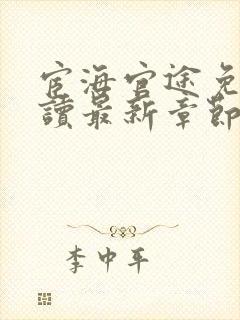 宦海官途免
讀最新章節
李中平